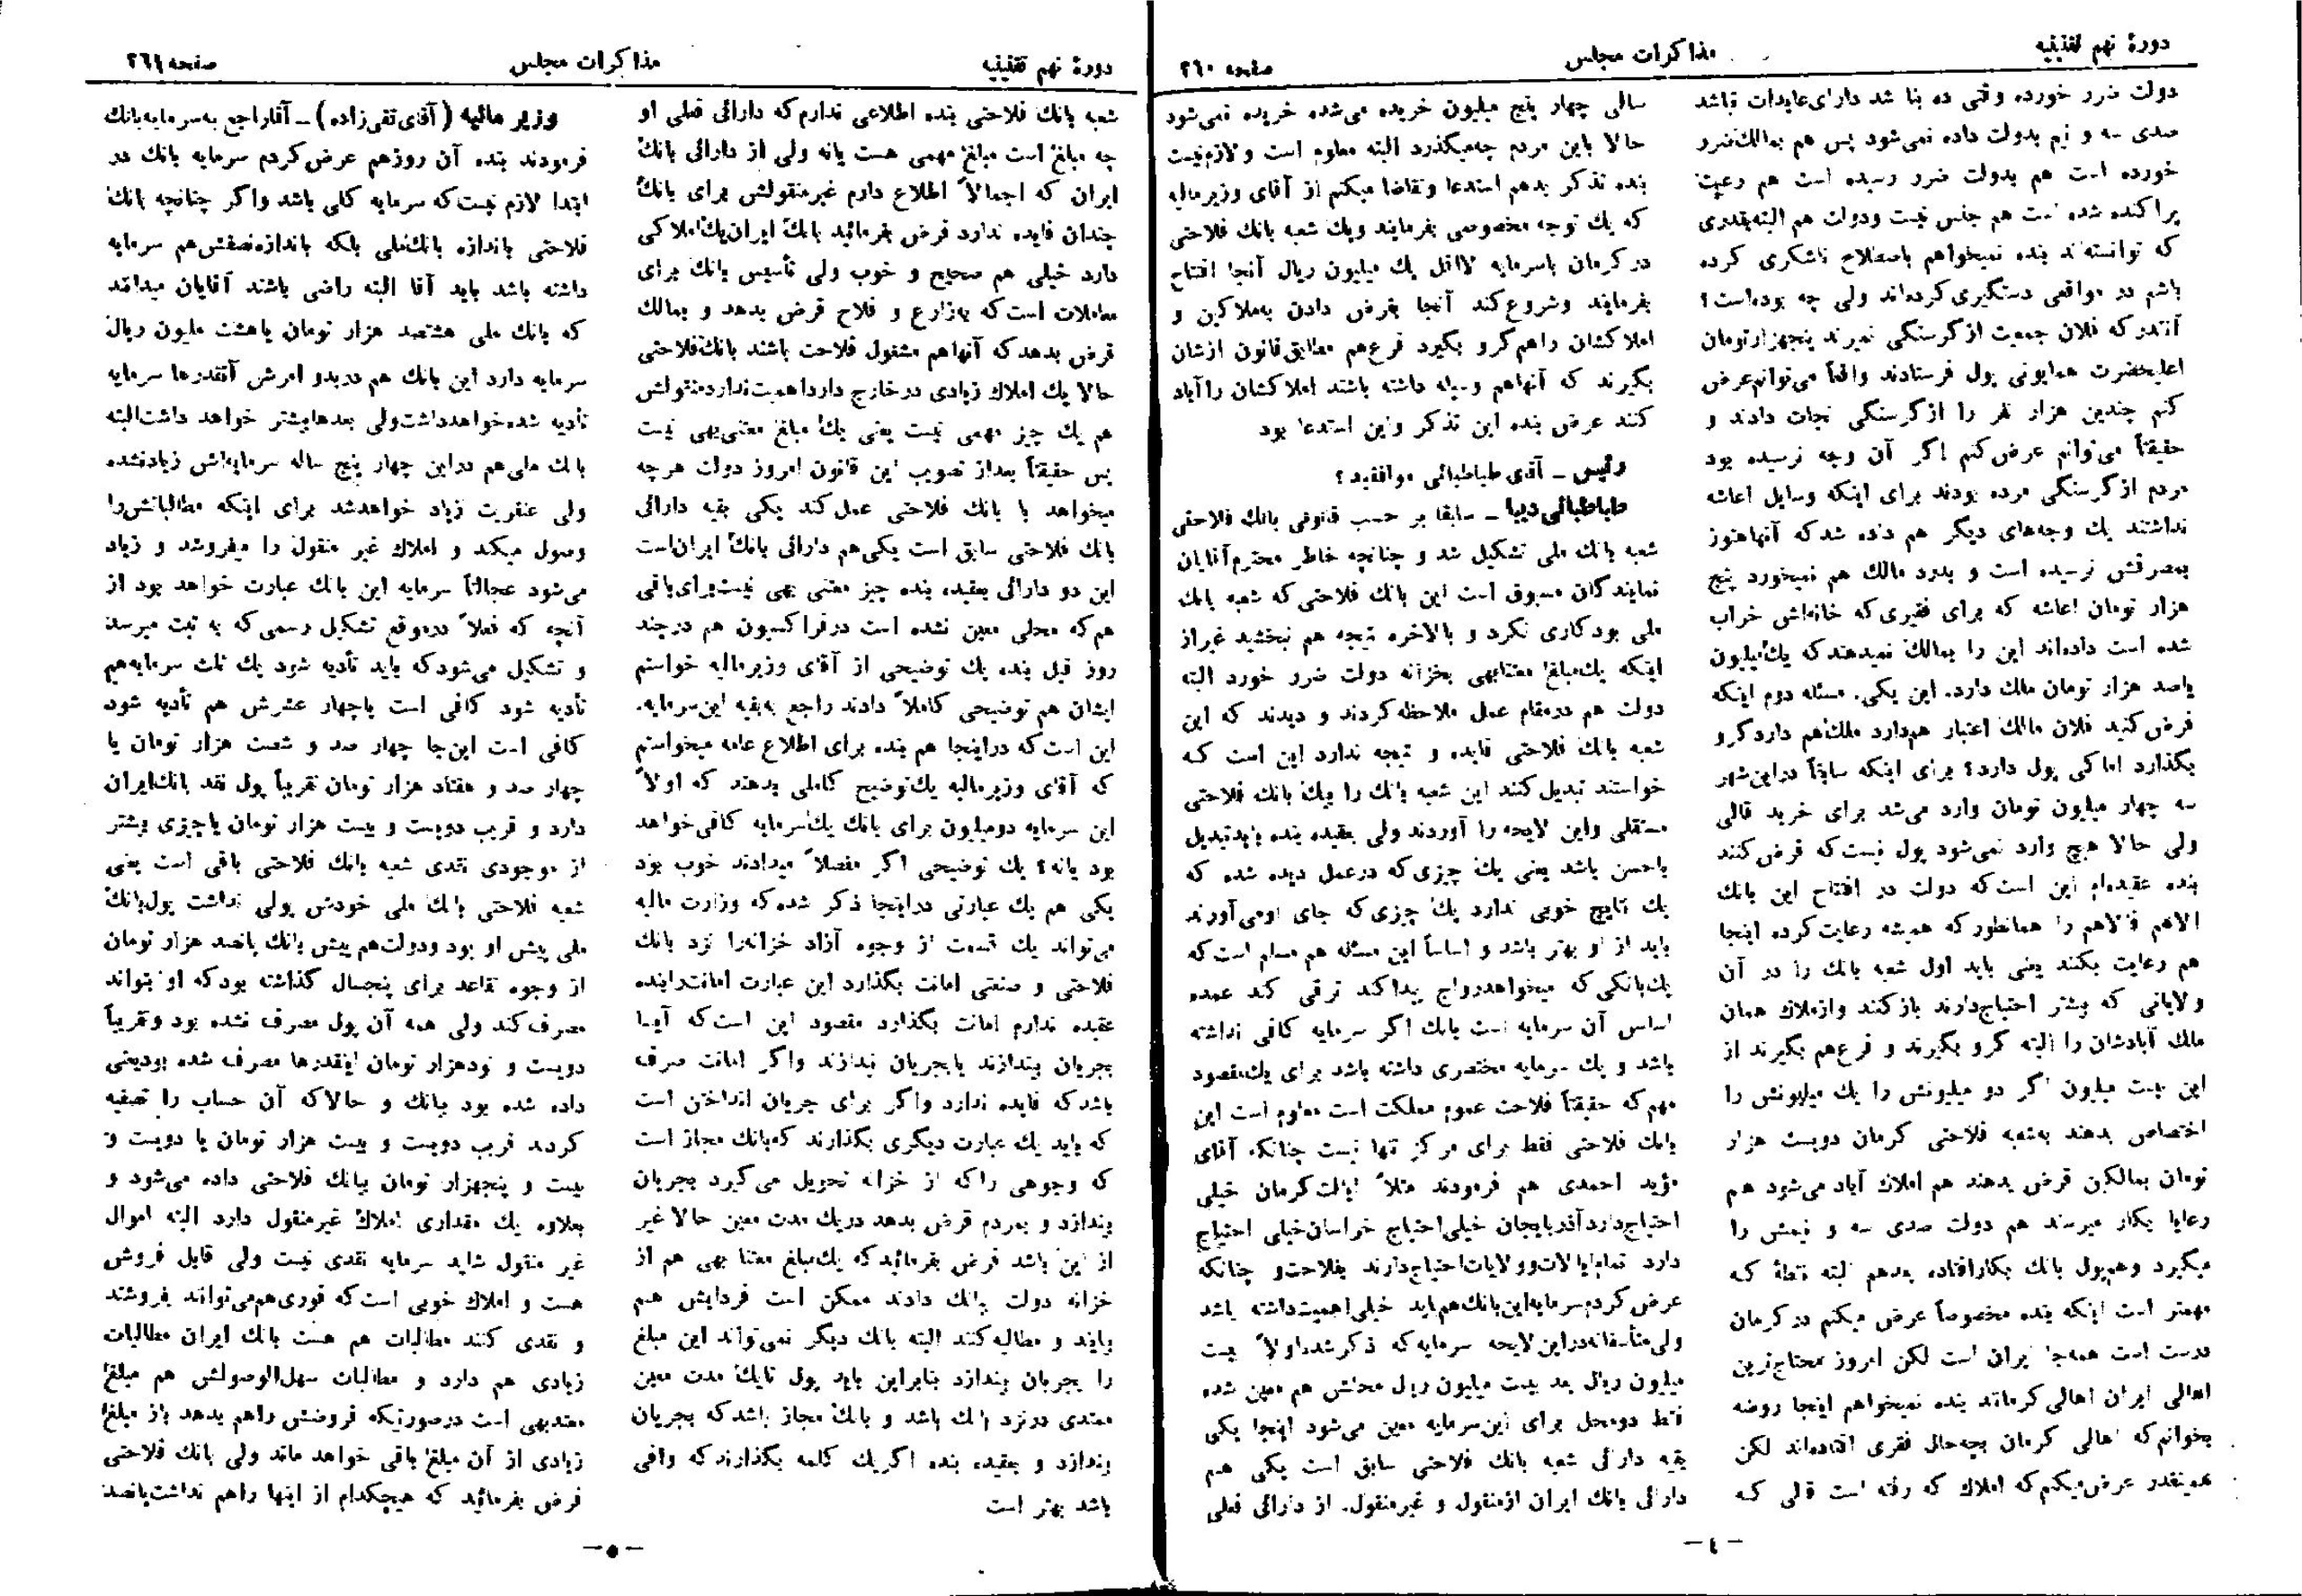 دورهٔ نهم تقنینیه
مذاکرات مجلس
صفحه ۲۶۰
دولت ضرر خورده وقتی ده بنا شد دارای عایدات نباشد
صدی سه و نیم بدولت داده نمی‌شود پس هم بمالك ضرر
خورده است هم بدولت ضرر رسیده است هم رعیت
پراکنده شده است هم جنس نیست ودولت هم البته بقدری
که توانسته‌اند بنده نمیخواهم باصطلاح ناشکری کرده
باشم در مواقعی دستگیری کرده‌اند ولی چه بوده‌است؟
آنقدر که فلان جمعیت از گرسنگی نمیرند پنجهزار تومان
اعلیحضرت همایونی پول فرستادند واقعاً می‌توانم عرض
کنم چندین هزار نفر را از گرسنگی نجات دادند و
حقیقتاً می‌توانم عرض کنم اگر آن وجه نرسیده بود
مردم از گرسنگی مرده بودند برای اینکه وسایل اعاشه
نداشتند یك وجه‌های دیگر هم داده شد که آنها هنوز
بمصرفش نرسیده است و بدرد مالك هم نمیخورد پنج
هزار تومان اعاشه که برای فقیری که خانه‌اش خراب
شده است داده‌اند این را بمالك نمیدهند که یك میلیون
یاصد هزار تومان ملك دارد. این یکی. مسئله دوم اینکه
فرض کنید فلان مالك اعتبار هم دارد ملك هم دارد گرو
بگذارد اما کی پول دارد؟ برای اینکه سابقاً در این شهر
سه چهار میلیون تومان وارد می‌شد برای خرید قالی
ولی حالا هیچ وارد نمی‌شود پول نیست که قرض کنند
بنده عقیده‌ام این است که دولت در افتتاح این بانك
الاهم فالاهم را همانطور که همیشه رعایت کرده اینجا
هم رعایت بکند یعنی باید اول شعبه بانك را در آن
ولایاتی که بیشتر احتیاج دارند باز کنند وازملاك همان
ملك آبادشان را البته گرو بگیرند و فرع هم بگیرند از
این بیست میلیون اگر دو میلیونش را یك میلیونش را
اختصاص بدهند به‌شعبه فلاحتی کرمان دویست هزار
تومان بمالکین قرض بدهند هم املاك آباد می‌شود هم
رعایا بکار میرسند هم دولت صدی سه و نیمش را
میگیرد وهم پول بانك بکار افتاده بعدهم البته نقطهٔ که
مهمتر است اینکه بنده مخصوصاً عرض میکنم در کرمان
درست است همه‌جا ایران است لکن امروز محتاج‌ترین
اهالی ایران اهالی کرمانند بنده نمیخواهم اینجا روضه
بخوانم که اهالی کرمان بچه حال فقری افتاده‌اند لکن
همینقدر عرض میکنم که املاك که رفته است قالی که
سالی چهار پنج میلیون خریده می‌شده خریده نمی‌شود
حالا باین مردم چه میگذرد البته معلوم است و لازم نیست
بنده تذکر بدهم استدعا وتقاضا میکنم از آقای وزیر مالیه
که یك توجه مخصوصی بفرمایند ویك شعبه بانك فلاحتی
در کرمان باسرمایه لااقل یك میلیون ریال آنجا افتتاح
بفرمایند وشروع کند آنجا بقرض دادن به‌ملاکین و
املاکشان را هم گرو بگیرد فرع هم مطابق قانون ازشان
بگیرند که آنها هم وسیله داشته باشند املاکشان را آباد
کنند عرض بنده این تذکر واین استدعا بود
رئیس ــ آقای طباطبائی موافقید؟
طباطبائی دیبا ــ سابقا بر حسب قانونی بانك فلاحتی
شعبه بانك ملی تشکیل شد و چنانچه خاطر محترم آقایان
نمایندگان مسبوق است این بانك فلاحتی که شعبه بانك
ملی بود کاری نکرد و بالاخره نتیجه هم نبخشید غیر از
اینکه یك مبلغ معتنابهی بخزانه دولت ضرر خورد البته
دولت هم در مقام عمل ملاحظه کردند و دیدند که این
شعبه بانك فلاحتی فایده و نتیجه ندارد این است که
خواستند تبدیل کنند این شعبه بانك را بیك بانك فلاحتی
مستقلی واین لایحه را آوردند ولی بعقیده بنده باید تبدیل
باحسن باشد یعنی یك چیزی که در عمل دیده شده که
یك نتایج خوبی ندارد یك چیزی که جای او می‌آورند
باید از او بهتر باشد و اساساً این مسئله هم مسلم است که
یك بانکی که میخواهد رواج پیدا کند ترقی کند عمده
اساس آن سرمایه است بانك اگر سرمایه کافی نداشته
باشد و یك سرمایه مختصری داشته باشد برای یك مقصود
مهم که حقیقتاً فلاحت عموم مملکت است معلوم است این
بانك فلاحتی فقط برای مرکز تنها نیست چنانکه آقای
مؤید احمدی هم فرمودند مثلاً ایالت کرمان خیلی
احتیاج دارد آذربایجان خیلی احتیاج خراسان خیلی احتیاج
دارد تمام ایالات و ولایات احتیاج دارند بفلاحت و چنانکه
عرض کردم سرمایه این بانك هم باید خیلی اهمیت داشته باشد
ولی متأسفانه در این لایحه سرمایه که ذکر شده اولاً بیست
میلیون ریال بعد بیست میلیون ریال محلش هم معین شده
فقط دومحل برای این سرمایه معین می‌شود اینجا یکی
بقیه دارائی شعبه بانك فلاحتی سابق است یکی هم
دارائی بانك ایران ازمنقول و غیرمنقول. از دارائی فعلی
ــ ٤ ــ
دورهٔ نهم تقنینیه
مذاکرات مجلس
صفحه ۲۶۱
شعبه بانك فلاحتی بنده اطلاعی ندارم که دارائی فعلی او
چه مبلغ است مبلغ مهمی هست یانه ولی از دارائی بانك
ایران که اجمالاً اطلاع دارم غیرمنقولش برای بانك
چندان فایده ندارد فرض بفرمائید بانك ایران یك املاکی
دارد خیلی هم صحیح و خوب ولی تأسیس بانك برای
معاملات است که بزارع و فلاح قرض بدهد و بمالك
قرض بدهد که آنها هم مشغول فلاحت باشند بانك فلاحتی
حالا یك املاك زیادی در خارج دارد اهمیت ندارد منقولش
هم یك چیز مهمی نیست یعنی یك مبلغ معتنی‌بهی نیست
پس حقیقتاً بعداز تصویب این قانون امروز دولت هرچه
میخواهد با بانك فلاحتی عمل کند یکی بقیه دارائی
بانك فلاحتی سابق است یکی هم دارائی بانك ایران است
این دو دارائی بعقیده بنده چیز معتنی بهی نیست برای باقی
هم که محلی معین نشده است درفراکسیون هم در چند
روز قبل بنده یك توضیحی از آقای وزیر مالیه خواستم
ایشان هم توضیحی کاملاً دادند راجع به‌بقیه این سرمایه.
این است که در اینجا هم بنده برای اطلاع عامه میخواستم
که آقای وزیر مالیه یك توضیح کاملی بدهند که اولاً
این سرمایه دومیلیون برای بانك یك سرمایه کافی خواهد
بود یانه؟ یك توضیحی اگر مفصلاً میدادند خوب بود
یکی هم یك عبارتی در اینجا ذکر شده که وزارت مالیه
می‌تواند یك قسمت از وجوه آزاد خزانه را نزد بانك
فلاحتی و صنعتی امانت بگذارد این عبارت امانت را بنده
عقیده ندارم امانت بگذارد مقصود این است که آیا
بجریان بیندازند یابجریان نیندازند واگر امانت صرف
باشد که فایده ندارد واگر برای جریان انداختن است
که باید یك عبارت دیگری بگذارند که بانك مجاز است
که وجوهی را که از خزانه تحویل می‌گیرد بجریان
بیندازد و بمردم قرض بدهد دریك مدت معین حالا غیر
از این باشد فرض بفرمائید که یك مبلغ معتنا بهی هم از
خزانه دولت ببانك دادند ممکن است فردایش هم
بیایند و مطالبه کنند البته بانك دیگر نمی‌تواند این مبلغ
را بجریان بیندازد بنابراین باید پول تایك مدت معین
ممتدی درنزد بانك باشد و بانك مجاز باشد که بجریان
بیندازد و بعقیده بنده اگر یك کلمه بگذارند که وافی
باشد بهتر است
وزیر مالیه (آقای تقی‌زاده) ــ آقا راجع به سرمایه بانك
فرمودند بنده آن روز هم عرض کردم سرمایه بانك در
ابتدا لازم نیست که سرمایه کلی باشد واگر چنانچه بانك
فلاحتی باندازه بانك ملی بلکه باندازه نصفش هم سرمایه
داشته باشد باید آقا البته راضی باشند آقایان میدانند
که بانك ملی هشتصد هزار تومان یا هشت ملیون ریال
سرمایه دارد این بانك هم در بدو امرش آنقدرها سرمایه
تأدیه شده خواهد داشت ولی بعدها بیشتر خواهد داشت البته
بانك ملی هم در این چهار پنج ساله سرمایه‌اش زیاد نشده
ولی عنقریب زیاد خواهد شد برای اینکه مطالباتش را
وصول میکند و املاك غیر منقول را میفروشد و زیاد
می‌شود عجالتاً سرمایه این بانك عبارت خواهد بود از
آنچه که فعلاً در موقع تشکیل رسمی که به ثبت میرسد
و تشکیل می‌شود که باید تأدیه شود یك ثلث سرمایه هم
تأدیه شود کافی است یاچهار عشرش هم تأدیه شود
کافی است این‌جا چهار صد و شصت هزار تومان یا
چهار صد و هفتاد هزار تومان تقریباً پول نقد بانك ایران
دارد و قریب دویست و بیست هزار تومان یا چیزی بیشتر
از موجودی نقدی شعبه بانك فلاحتی باقی است یعنی
شعبه فلاحتی بانك ملی خودش پولی نداشت پول بانك
ملی پیش او بود ودولت هم پیش بانك پانصد هزار تومان
از وجوه تقاعد برای پنجسال گذاشته بود که او بتواند
مصرف کند ولی همه آن پول مصرف نشده بود وتقریباً
دویست و نودهزار تومان اینقدرها مصرف شده بودیعنی
داده شده بود ببانك و حالا که آن حساب را تصفیه
کردند قریب دویست و بیست هزار تومان یا دویست و
بیست و پنجهزار تومان ببانك فلاحتی داده می‌شود و
بعلاوه یك مقداری املاك غیرمنقول دارد البته اموال
غیر منقول شاید سرمایه نقدی نیست ولی قابل فروش
هست و املاك خوبی است که فوری هم می‌توانند بفروشند
و نقدی کنند مطالبات هم هست بانك ایران مطالبات
زیادی هم دارد و مطالبات سهل‌الوصولش هم مبلغ
معتدبهی است درصورتیکه قروضش را هم بدهد باز مبلغ
زیادی از آن مبلغ باقی خواهد ماند ولی بانك فلاحتی
فرض بفرمائید که هیچکدام از اینها را هم نداشت پانصد
ــ ٥ ــ